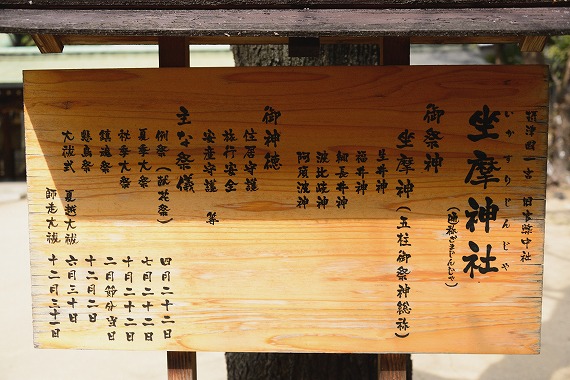 摂津国一宮 旧官幣中社
いかすりじんじゃ
坐摩神社
(通称ざまじんじゃ)
御祭神
坐摩神(五柱御祭神総称)
生井神
福井神
綱長井神
波比岐神
阿須波神
御神徳
住居守護
旅行安全
安産守護 等
主な祭儀
例祭(献花祭) 四月二十二日
夏季大祭 七月二十二日
秋季大祭 十月二十二日
鎮魂祭 二月節分当日
繫島祭 十二月二日
大祓式 夏越大祓 六月三十日
師走大祓 十二月三十一日